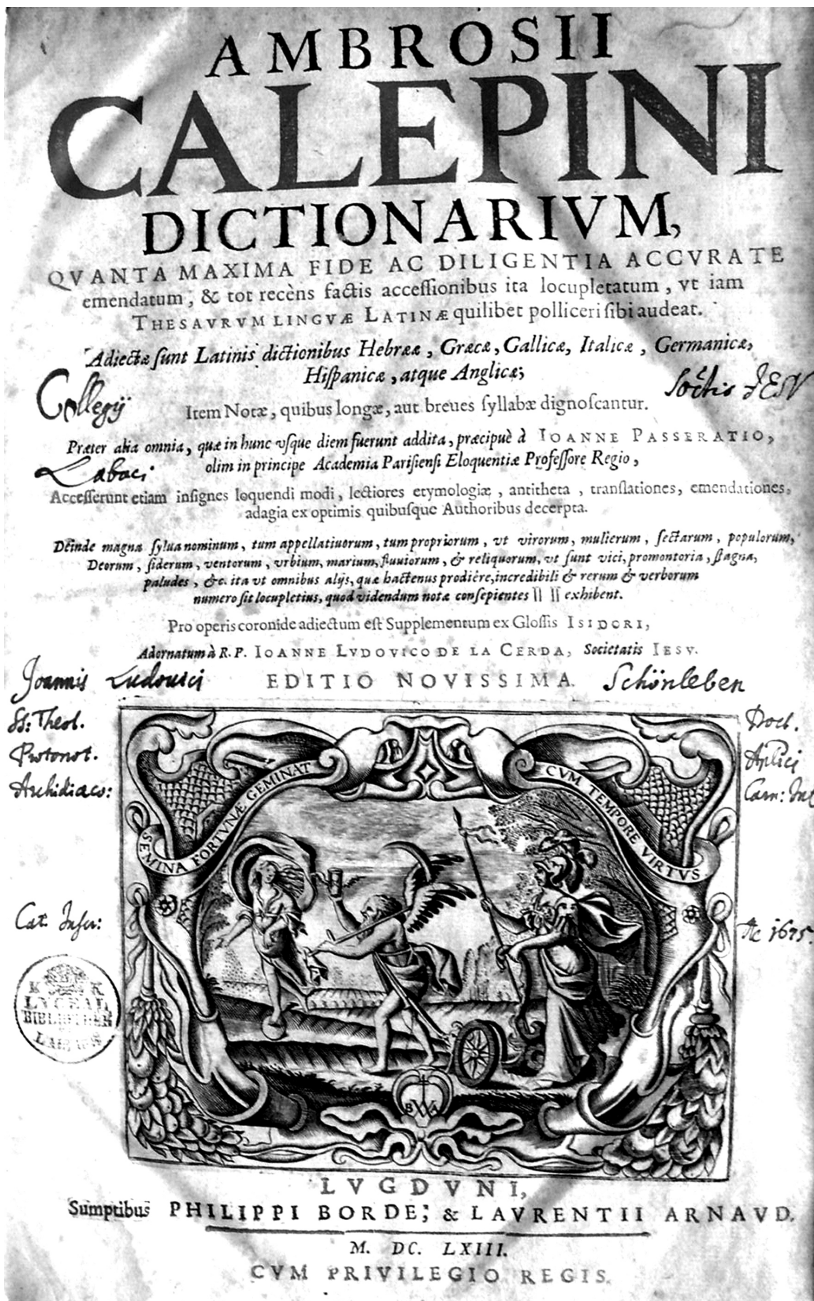 AMBROSII
CALEPINI
DICTIONARIVM,
QVANTA MAXIMA FIDE AC DILIGENTIA ACCVRATE
emendatum, & tot recèns factis accessionibus ita locupletatum, vt iam
THESAVRVM LINGVÆ LATINÆ quilibet polliceri sibi audeat.
Adiectæ sunt Latinis dictionibus Hebrææ, Græcæ, Gallicæ, Italicæ, Germanicæ,
Hispanicæ, atque Anglicæ;
Collegij Soctis JESV
Item Notæ, quibus longæ, aut breues syllabæ dignoscantur.
Præter alia omnia, quæ in hunc vsque diem fuerunt addita, præcipuè à IOANNE PASSERATIO,
Labaci
olim in principe Academia Parisiensi Eloquentiæ Professore Regio,
Accesserunt etiam insignes loquendi modi, lectiores etymologiæ, antitheta, translationes, emendationes,
adagia ex optimis quibusque Authoribus decerpta.
Deinde magna sylua nominum, tum appellatiuorum, tum propriorum, vt virorum, mulierum, sectarum, populorum,
Deorum, siderum, ventorum, vrbium, marium, fluuiorum, & reliquorum, vt sunt vici, promontoria, stagna,
paludes, &c. ita vt omnibus alijs, quæ hactenus prodiêre, incredibili & rerum & verborum
numero sit locupletius, quod videndum notæ consepientes [] [] exhibent.
Pro operis coronide adiectum est Supplementum ex Glossis ISIDORI,
Adornatum à R. P. IOANNE LVDOVICO DE LA CERDA, Societatis IESV.
Joannis Ludouici Schönleben
EDITIO NOVISSIMA.
SS: Theol. Doct.
Protonot. Aplici
Archidiaco: Carn: Inf
SEMINA FORTVNÆ GEMINAT
CVM TEMPORE VIRTVS
Cat. Inscr: Ao 1675.
K K
LYCEAL
BIBLIOTHEK
LAIBACH
B A
LVGDVNI,
Sumptibus PHILIPPI BORDE, & LAVRENTII ARNAVD.
M. DC. LXIII.
CVM PRIVILEGIO REGIS.